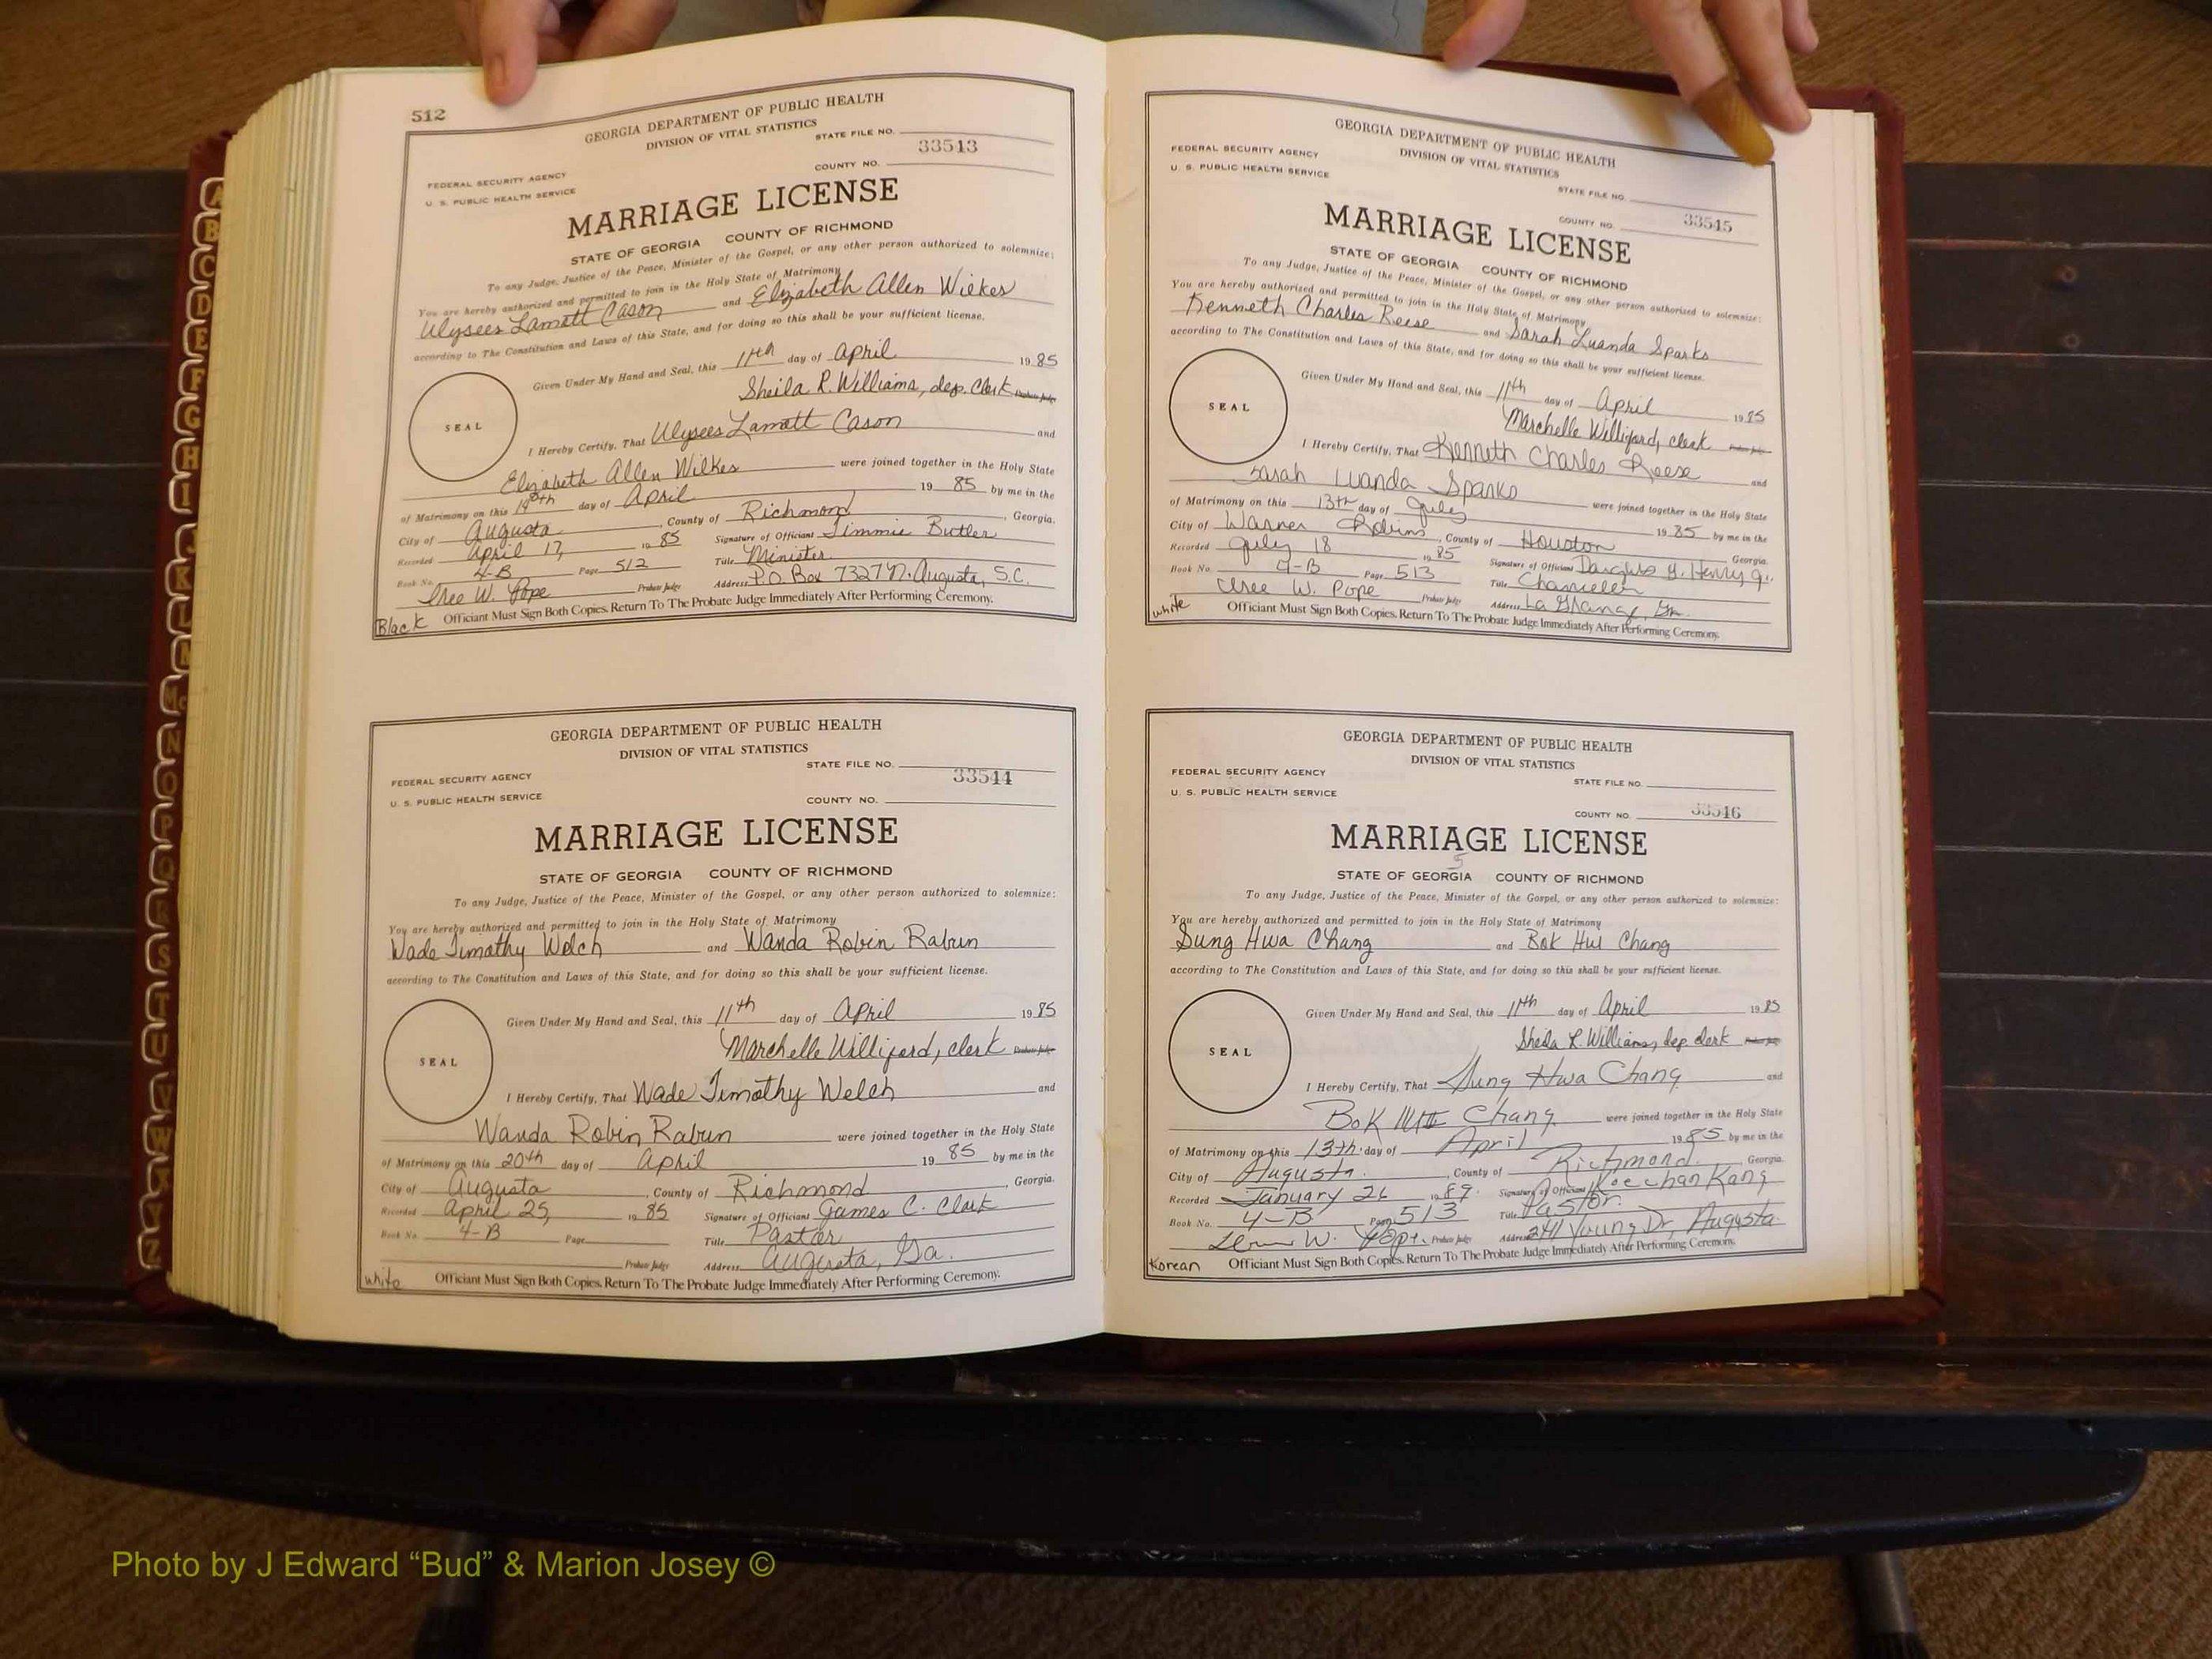 512
GEORGIA DEPARTMENT OF PUBLIC HEALTH
DIVISION OF VITAL STATISTICS
STATE FILE NO.
33543
COUNTY NO.
FEDERAL SECURITY AGENCY
U. S. PUBLIC HEALTH SERVICE
MARRIAGE LICENSE
STATE OF GEORGIA COUNTY OF RICHMOND
To any Judge, Justice of the Peace, Minister of the Gospel, or any other person authorized to solemnize:
You are hereby authorized and permitted to join in the Holy State of Matrimony
Ulysees Lamatt Cason and Elizabeth Allen Wilkes
according to The Constitution and Laws of this State, and for doing so this shall be your sufficient license.
SEAL
Given Under My Hand and Seal, this 11th day of April 1985
Sheila R. Williams, dep. Clerk Probate Judge
I Hereby Certify, That Ulysees Lamatt Cason and
Elizabeth Allen Wilkes were joined together in the Holy State
of Matrimony on this day of April 19 85 by me in the
City of Augusta, County of Richmond, Georgia.
Recorded April 17, 1985 Signature of Officiant Jimmie Butler
Book No. 4-B Page 512 Title Minister
W. Pope Probate Judge Address P.O. Box 7327 N. Augusta, S.C.
Black Officiant Must Sign Both Copies. Return To The Probate Judge Immediately After Performing Ceremony.
GEORGIA DEPARTMENT OF PUBLIC HEALTH
DIVISION OF VITAL STATISTICS
STATE FILE NO.
33544
FEDERAL SECURITY AGENCY
U. S. PUBLIC HEALTH SERVICE
COUNTY NO.
MARRIAGE LICENSE
STATE OF GEORGIA COUNTY OF RICHMOND
To any Judge, Justice of the Peace, Minister of the Gospel, or any other person authorized to solemnize:
You are hereby authorized and permitted to join in the Holy State of Matrimony
Wade Timothy Welch and Wanda Robin Rabun
according to The Constitution and Laws of this State, and for doing so this shall be your sufficient license.
SEAL
Given Under My Hand and Seal, this 11th day of April 1985
Marchelle Williford, clerk Probate Judge
I Hereby Certify, That Wade Timothy Welch and
Wanda Robin Rabun were joined together in the Holy State
of Matrimony on this 20th day of April 19 85 by me in the
City of Augusta, County of Richmond, Georgia.
Recorded April 25, 1985 Signature of Officiant James C. Clark
Book No. 4-B Page Title Pastor
Probate Judge Address Augusta, Ga.
white Officiant Must Sign Both Copies. Return To The Probate Judge Immediately After Performing Ceremony.
GEORGIA DEPARTMENT OF PUBLIC HEALTH
DIVISION OF VITAL STATISTICS
FEDERAL SECURITY AGENCY
U. S. PUBLIC HEALTH SERVICE
STATE FILE NO.
COUNTY NO. 33545
MARRIAGE LICENSE
STATE OF GEORGIA COUNTY OF RICHMOND
To any Judge, Justice of the Peace, Minister of the Gospel, or any other person authorized to solemnize:
You are hereby authorized and permitted to join in the Holy State of Matrimony
Kenneth Charles Reese and Sarah Luanda Sparks
according to The Constitution and Laws of this State, and for doing so this shall be your sufficient license.
SEAL
Given Under My Hand and Seal, this 11th day of April 1985
Marchelle Williford, clerk
I Hereby Certify, That Kenneth Charles Reese and
Sarah Luanda Sparks were joined together in the Holy State
of Matrimony on this 13th day of July 19 85 by me in the
City of Warner Robins, County of Houston Georgia.
Recorded July 18 1985 Signature of Officiant Henry
Book No. 4-B Page 513 Title
W. Pope Probate Judge Address La Grange, Ga.
white Officiant Must Sign Both Copies. Return To The Probate Judge Immediately After Performing Ceremony.
GEORGIA DEPARTMENT OF PUBLIC HEALTH
DIVISION OF VITAL STATISTICS
FEDERAL SECURITY AGENCY
U. S. PUBLIC HEALTH SERVICE
STATE FILE NO.
COUNTY NO. 33546
MARRIAGE LICENSE
5
STATE OF GEORGIA COUNTY OF RICHMOND
To any Judge, Justice of the Peace, Minister of the Gospel, or any other person authorized to solemnize:
You are hereby authorized and permitted to join in the Holy State of Matrimony
Sung Hwa Chang and Bok Hui Chang
according to The Constitution and Laws of this State, and for doing so this shall be your sufficient license.
SEAL
Given Under My Hand and Seal, this 11th day of April 1985
Sheila R. Williams, dep clerk
I Hereby Certify, That Sung Hwa Chang and
Bok Chang were joined together in the Holy State
of Matrimony on this 13th day of April 1985 by me in the
City of Augusta, County of Richmond, Georgia.
Recorded January 26 1989. Signature of Officiant Kang
Book No. 4-B Page 513 Title Pastor.
W. Probate Judge Address 241 Young Dr, Augusta.
Korean Officiant Must Sign Both Copies. Return To The Probate Judge Immediately After Performing Ceremony.
A
B
C
D
E
F
G
H
I
J
K
L
M
Mc
N
O
P
Q
R
S
T
U
V
W
Y
Z
Photo by J Edward “Bud” & Marion Josey ©